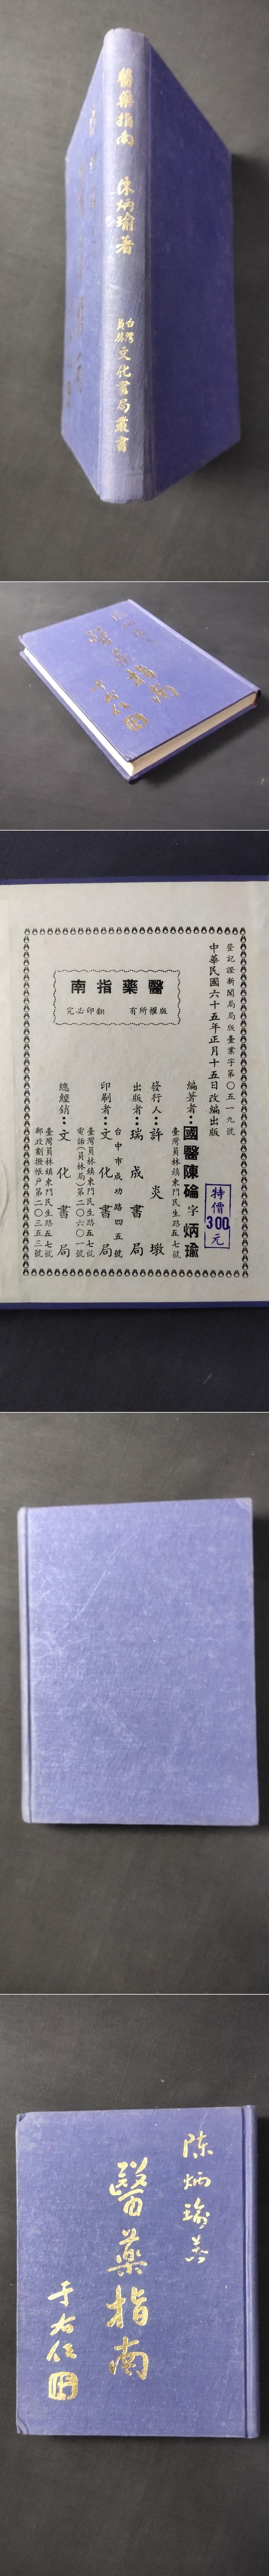 醫藥指南 陳炳瑜著 台灣員林文化書局叢書
醫藥指南
于右任
登記證新聞局局版臺業字第〇五一九號
中華民國六十五年正月十五日改編出版
特價
300
元
編著者：國醫陳碖字炳瑜
臺灣員林鎮東門民生路五七號
發行人：許炎墩
出版者：瑞成書局
台中市成功路四五號
印刷者：文化書局
臺灣員林鎮東門民生路五七號
電話(員林局)第二〇六〇一號
總經銷：文化書局
臺灣員林鎮東門民生路五七號
郵政劃撥帳戶第二〇三五三號
醫藥指南
版權所有 翻印必究
陳炳瑜著
醫藥指南
于右任